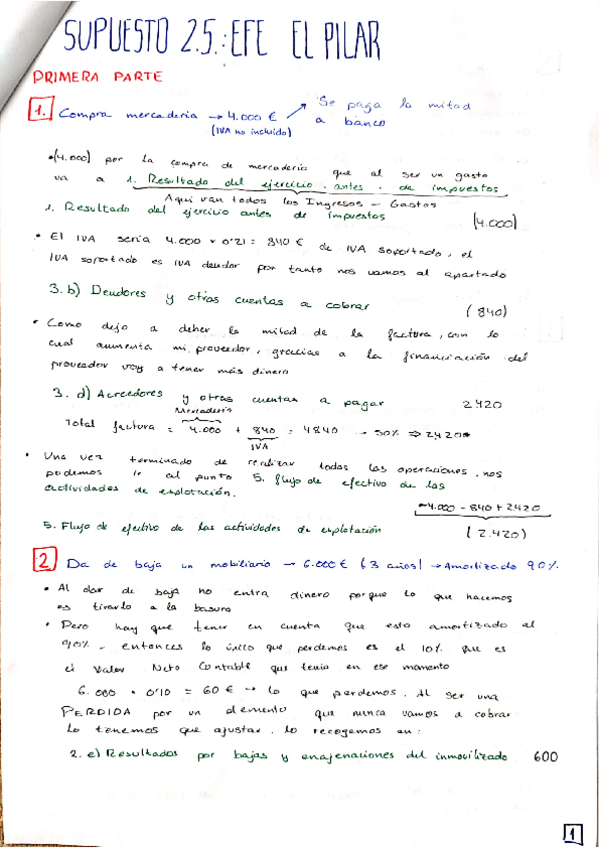 SUPUESTO 2.5.: EFE EL PILAR
PRIMERA PARTE
1. Compra mercaderia → 4.000 € ↗ Se paga la mitad
(IVA no incluido) a banco
•(4.000) por la compra de mercaderia que al ser un gasto
va a 1. Resultado del ejercicio antes de impuestos
Aqui van todos los Ingresos - Gastos
1. Resultado del ejercicio antes de impuestos (4.000)
• El IVA seria 4.000 x 0'21 = 840 € de IVA soportado, el
IVA soportado es IVA deudor por tanto nos vamos al apartado
3. b) Deudores y otras cuentas a cobrar (840)
• Como dejo a deber la mitad de la factura, con lo
cual aumenta mi proveedor, gracias a la financiación del
proveedor voy a tener más dinero
3. d) Acreedores y otras cuentas a pagar 2420
Mercaderia
Total factura = 4.000 + 840 = 4840 → 50% ⇒ 2420
IVA
• Una vez terminado de realizar todas las operaciones, nos
podemos ir al punto 5. flujo de efectivo de las
actividades de explotación.
-4.000 - 840 + 2420
5. Flujo de efectivo de las actividades de explotación (2.420)
2 Da de baja un mobiliario → 6.000 € (3 años) → Amortizado 90%.
• Al dar de baja no entra dinero porque lo que hacemos
es tirarlo a la basura
• Pero hay que tener en cuenta que esta amortizado al
90%, entonces lo único que perdemos es el 10% que es
el Valor Neto Contable que tenia en ese momento
6.000 · 0'10 = 60 € → lo que perdemos. Al ser una
PERDIDA por un elemento que nunca vamos a cobrar
lo tenemos que ajustar. lo recogemos en:
2. e) Resultados por bajas y enajenaciones del inmovilizado 600
1